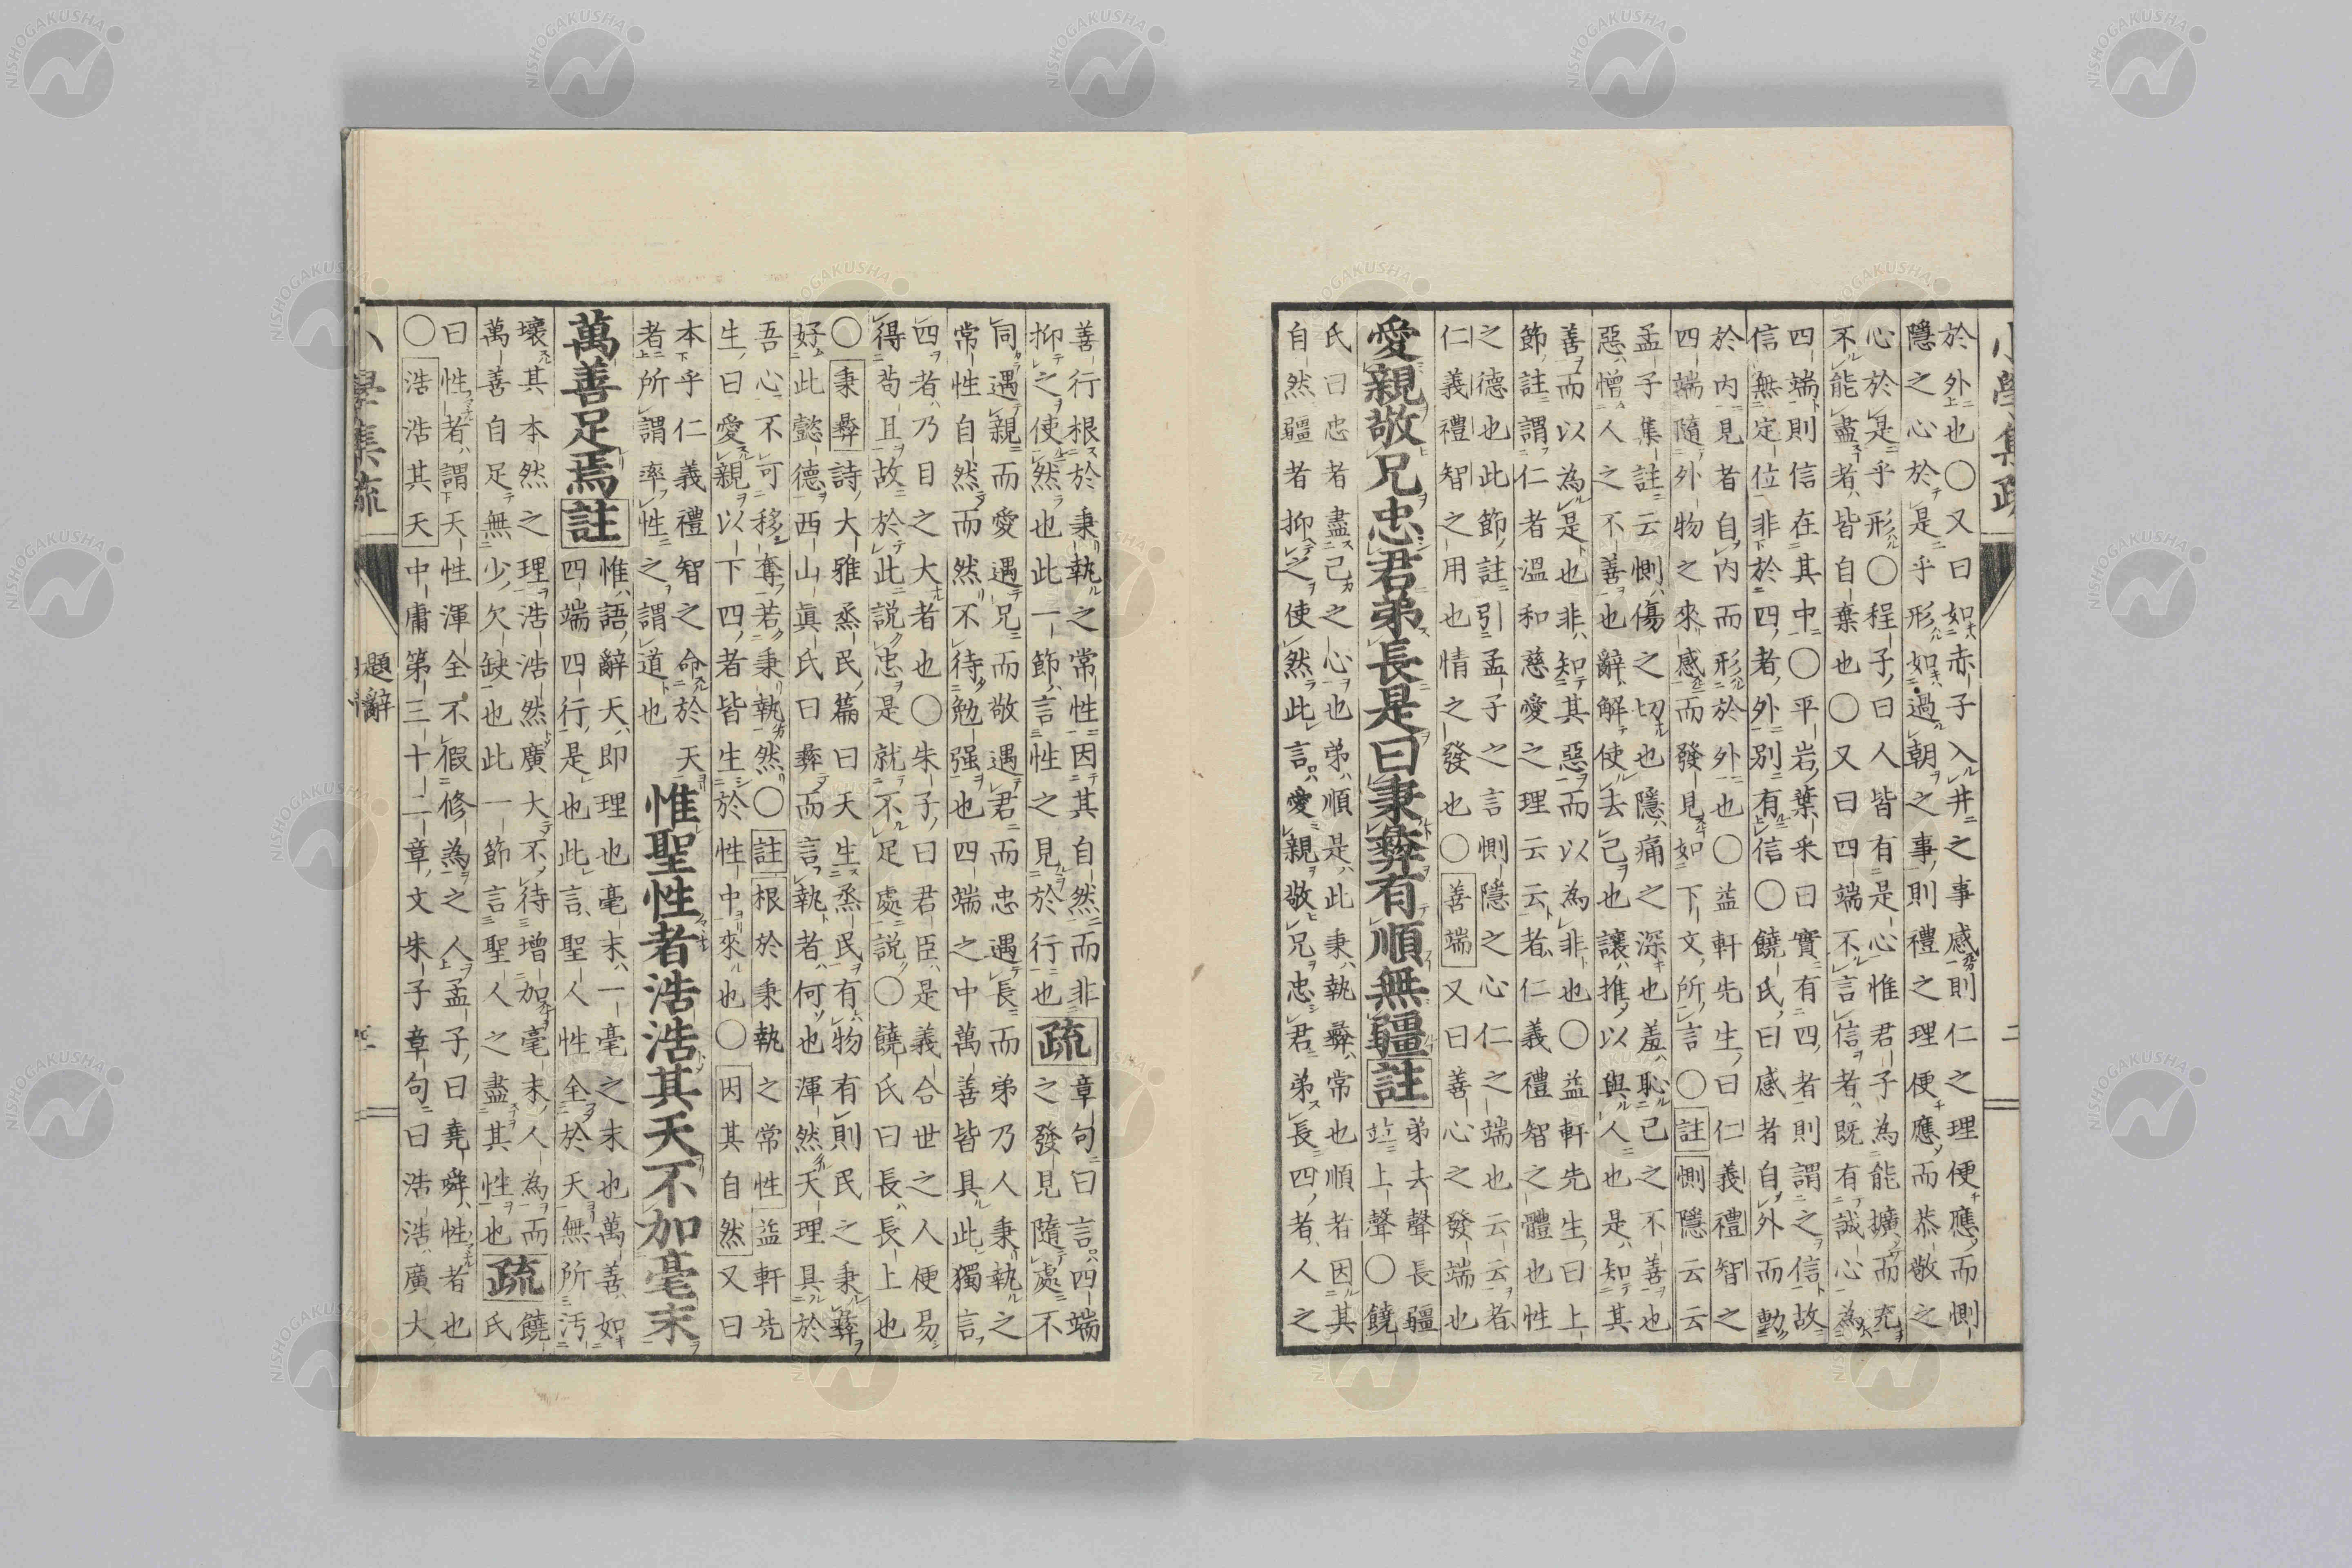 於外也○又曰如赤子入井之事感則仁之理便應而惻
隱之心於是乎形如過朝之事則禮之理便應而恭敬之
心於是乎形○程子曰人皆有是心惟君子為能擴而充
不能盡者皆自棄也○又曰四端不言信者既有誠心為
四端則信在其中○平岩葉采曰實有四者則謂之信故
信無定位非於四者外別有信○饒氏曰感者自外而動
於內見者自內而形於外也○益軒先生曰仁義禮智之
四端隨外物之來感而發見如下文所言○註惻隱云云
孟子集註云惻傷之切也隱痛之深也羞恥己之不善也
惡憎人之不善也辭解使去己也讓推以與人也是知其
善而以為是也非知其惡而以為非也○益軒先生曰上
節註謂仁者溫和慈愛之理云云者仁義禮智之體也性
之德也此節註引孟子之言惻隱之心仁之端也云云者
仁義禮智之用也情之發也○善端又曰善心之發端也
愛親敬兄忠君弟長是曰秉彝有順無疆註
弟去聲長疆
並上聲○饒
氏曰忠者盡己之心也弟順是此秉執彝常也順者因其
自然疆者抑之使然此言愛親敬兄忠君弟長四者人之
小學集疏
二
善行根於秉執之常性因其自然而非
抑之使然也此一節言性之見於行也疏
章句曰言四端
之發見隨處不
同遇親而愛遇兄而敬遇君而忠遇長而弟乃人秉執之
常性自然而然不待勉强也四端之中萬善皆具此獨言
四者乃目之大者也○朱子曰君臣是義合世之人便易
得苟且故於此說忠是就不足處說○饒氏曰長長上也
○秉彝詩大雅烝民篇曰天生烝民有物有則民之秉彝
好此懿德西山眞氏曰彝而言執者何也渾然天理具於
吾心不可移奪若秉執然○註根於秉執之常性益軒先
生曰愛親以下四者皆生於性中來也○因其自然又曰
本乎仁義禮智之命於天
者所謂率性之謂道也
惟聖性者浩浩其天不加毫末
萬善足焉註
惟語辭天即理也毫末一毫之末也萬善如
四端四行是也此言聖人性全於天無所汚
壞其本然之理浩浩然廣大不待增加毫末人為而
萬善自足無少欠缺也此一節言聖人之盡其性也疏
饒
氏
曰性者謂天性渾全不假修為之人孟子曰堯舜性者也
○浩浩其天中庸第三十二章文朱子章句曰浩浩廣大
小學集疏
題辭